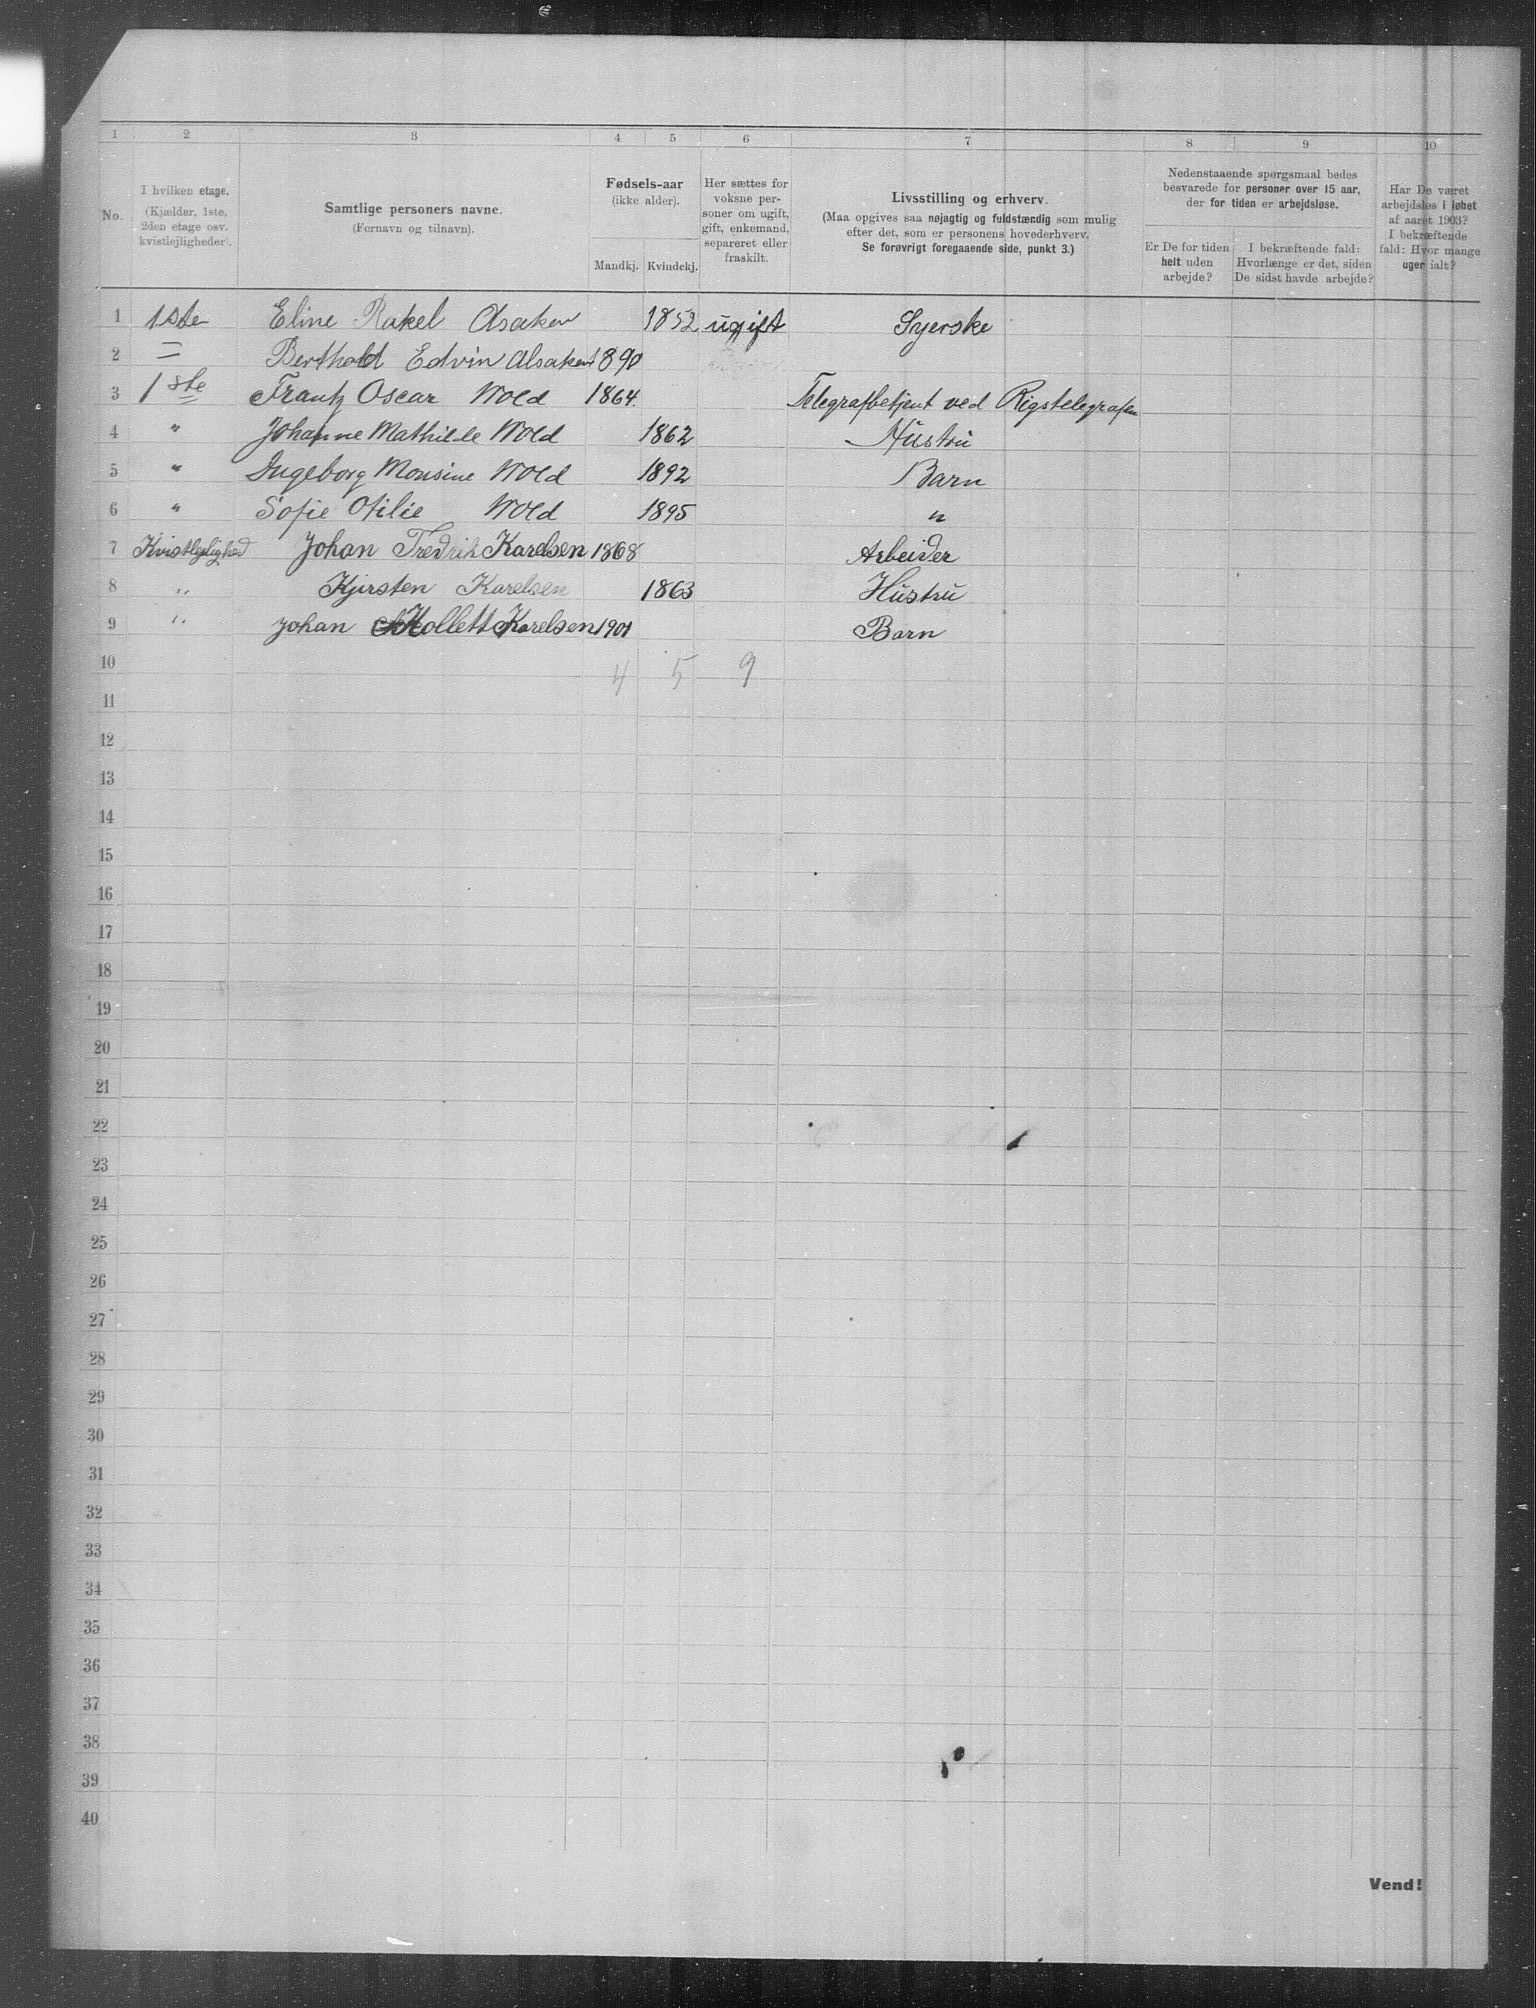 1 2 3 4 5 6 7 8 9 10
No.
I hvilken etage.
(Kjælder, 1ste,
2den etage osv.
kvistlejligheder).
Samtlige personers navne.
(Fornavn og tilnavn).
Fødsels-aar
(ikke alder).
Mandkj. Kvindekj.
Her sættes for
voksne per-
soner om ugift,
gift, enkemand,
separeret eller
fraskilt.
Livsstilling og erhverv.
(Maa opgives saa nøjagtig og fuldstændig som mulig
efter det, som er personens hovederhverv.
Se forøvrigt foregaaende side, punkt 3.)
Nedenstaaende spørgsmaal bedes
besvarede for personer over 15 aar,
der for tiden er arbejdsløse.
Er De for tiden
helt uden
arbejde?
I bekræftende fald:
Hvorlænge er det, siden
De sidst havde arbejde?
Har De været
arbejdsløs i løbet
af aaret 1903?
I bekræftende
fald: Hvor mange
uger ialt?
1 1ste Eline Rakel Alsaker 1852 ugift Syerske
2 = Berthold Edvin Alsaker 1890
3 1ste Frantz Oscar Wold 1864. Telegrafbetjent ved Rigstelegrafen
4 " Johanne Mathilde Wold 1862 Hustru
5 " Ingeborg Monsine Wold 1892 Barn
6 " Sofie Otilie Wold 1895 "
7 Kvistlejlighed Johan Fredrik Karelsen 1868 Arbeider
8 " Kjersten Karelsen 1863 Hustru
9 " Johan Kollett Karelsen 1901 Barn
10 4 5 9
11
12
13
14
15
16
17
18
19
20
21
22
23
24
25
26
27
28
29
30
31
32
33
34
35
36
37
38
39
40
Vend!